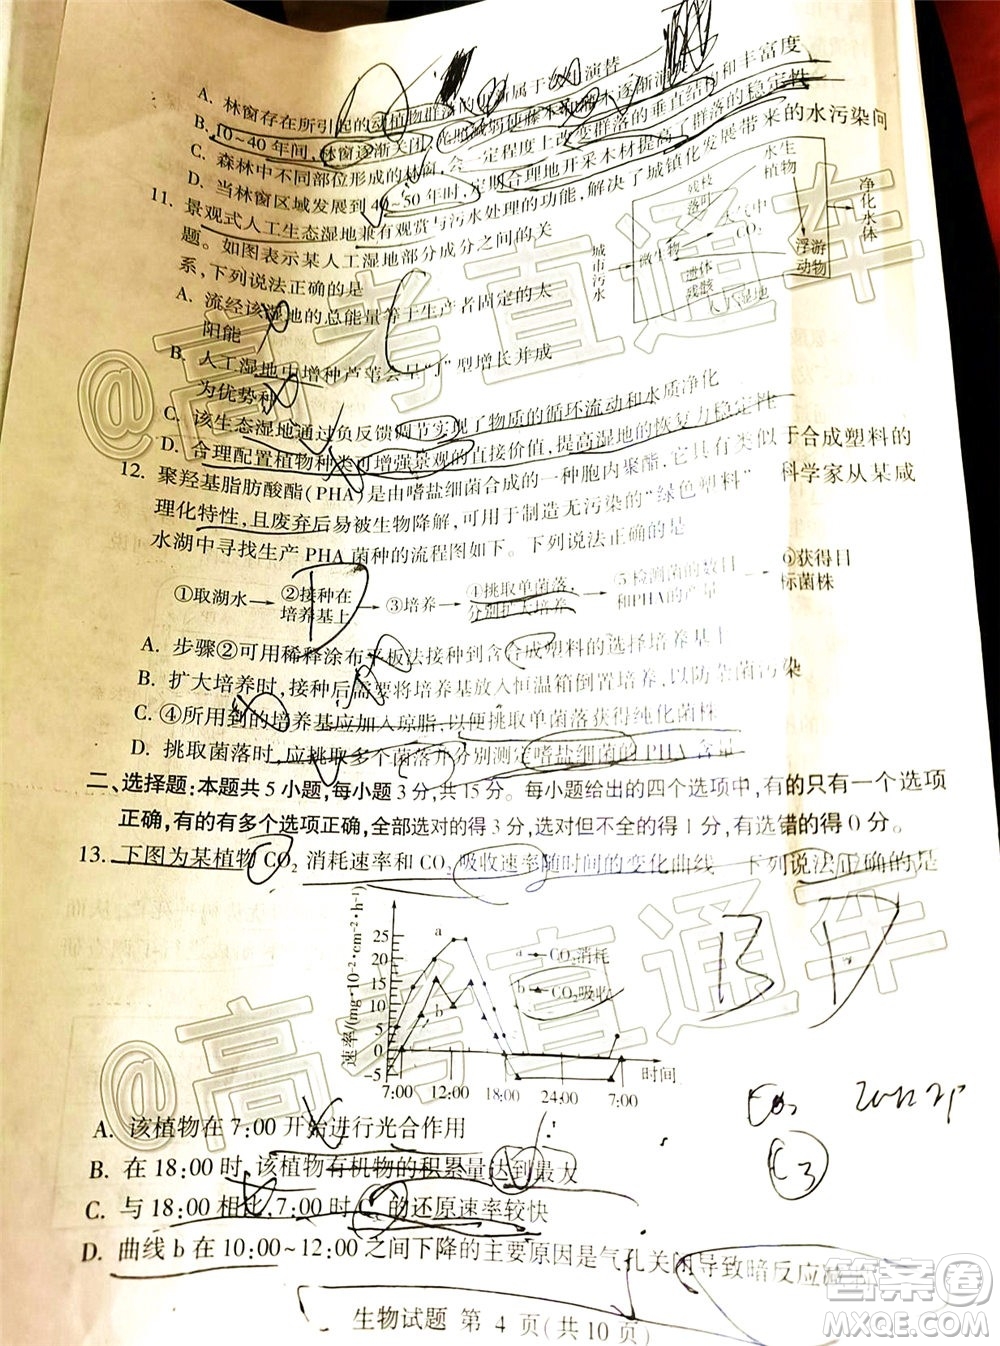 A. 林窗存在所引起的动植物群落的更新属于次生演替
B. 10~40年间,林窗逐渐关闭,光照减弱使藤本和草本逐渐演替
C. 森林中不同部位形成的林窗,会一定程度上改变群落的垂直结构和丰富度
D. 当林窗区域发展到40~50年时,定期合理地开采木材提高了群落的稳定性
11. 景观式人工生态湿地兼有观赏与污水处理的功能,解决了城镇化发展带来的水污染问
题。如图表示某人工湿地部分成分之间的关
系,下列说法正确的是
A. 流经该湿地的总能量等于生产者固定的太
阳能
B. 人工湿地中增种芦苇会呈“J”型增长并成
为优势种
C. 该生态湿地通过负反馈调节实现了物质的循环流动和水质净化
D. 合理配置植物种类可增强景观的直接价值,提高湿地的恢复力稳定性
城市污水
微生物
残枝落叶
遗体残骸
大气中CO₂
水生植物
浮游动物
人工湿地
净化水体
12. 聚羟基脂肪酸酯(PHA)是由嗜盐细菌合成的一种胞内聚酯,它具有类似于合成塑料的
理化特性,且废弃后易被生物降解,可用于制造无污染的“绿色塑料”。科学家从某咸
水湖中寻找生产PHA菌种的流程图如下。下列说法正确的是
①取湖水→②接种在培养基上→③培养→④挑取单菌落,分别扩大培养→⑤检测菌的数目和PHA的产量→⑥获得目标菌株
A. 步骤②可用稀释涂布平板法接种到含合成塑料的选择培养基上
B. 扩大培养时,接种后需要将培养基放入恒温箱倒置培养,防止杂菌污染
C. ④所用到的培养基应加入琼脂,以便挑取单菌落获得纯化菌株
D. 挑取菌落时,应挑取多个菌落并分别测定嗜盐细菌的PHA含量
二、选择题:本题共5小题,每小题3分,共15分。每小题给出的四个选项中,有的只有一个选项
正确,有的有多个选项正确,全部选对的得3分,选对但不全的得1分,有选错的得0分。
13. 下图为某植物CO₂消耗速率和CO₂吸收速率随时间的变化曲线,下列说法正确的是
速率/(mg·10⁻²·cm⁻²·h⁻¹)
25
20
15
10
5
0
-5
a
b
a CO₂消耗
b CO₂吸收
7:00 12:00 18:00 24:00 7:00 时间
B D
CO₂
C₃
A. 该植物在7:00开始进行光合作用
B. 在18:00时,该植物有机物的积累量达到最大
C. 与18:00相比,7:00时C₃的还原速率较快
D. 曲线b在10:00~12:00之间下降的主要原因是气孔关闭导致暗反应减
生物试题 第 4 页(共10页)
@高考直通车
@高考直通车
答案圈
MXQE.COM